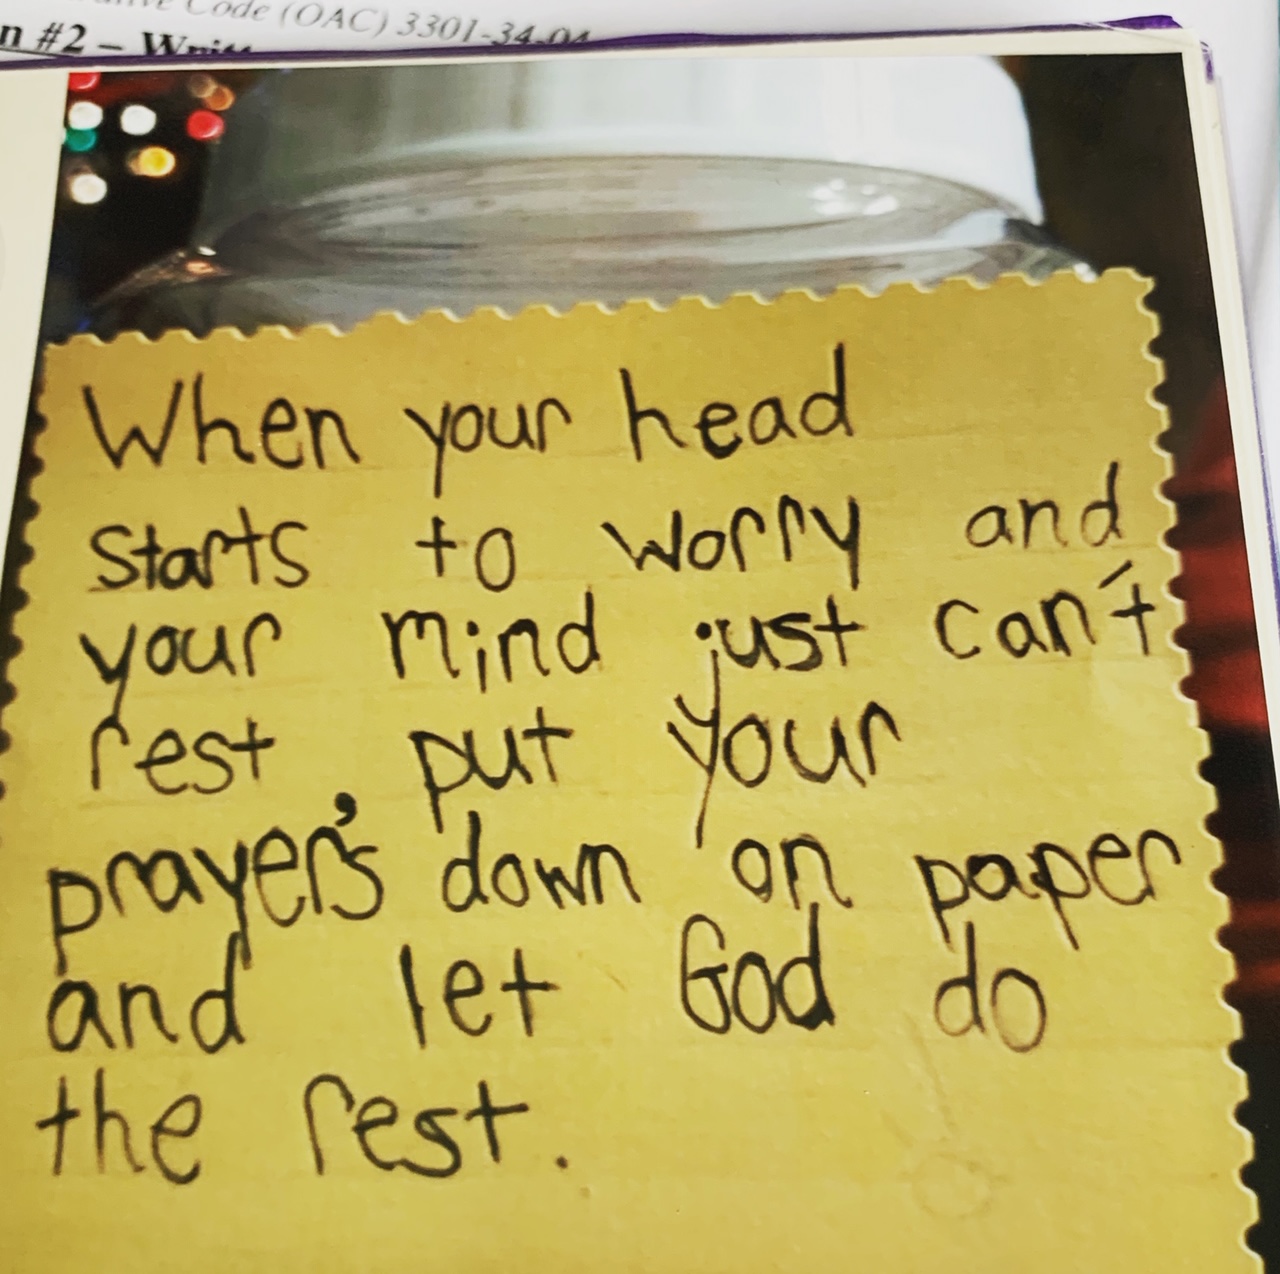 Code (OAC) 3301-34-04
#2 –
When your head
starts to worry and
your mind just can't
rest, put your
prayer's down on paper
and let God do
the rest.